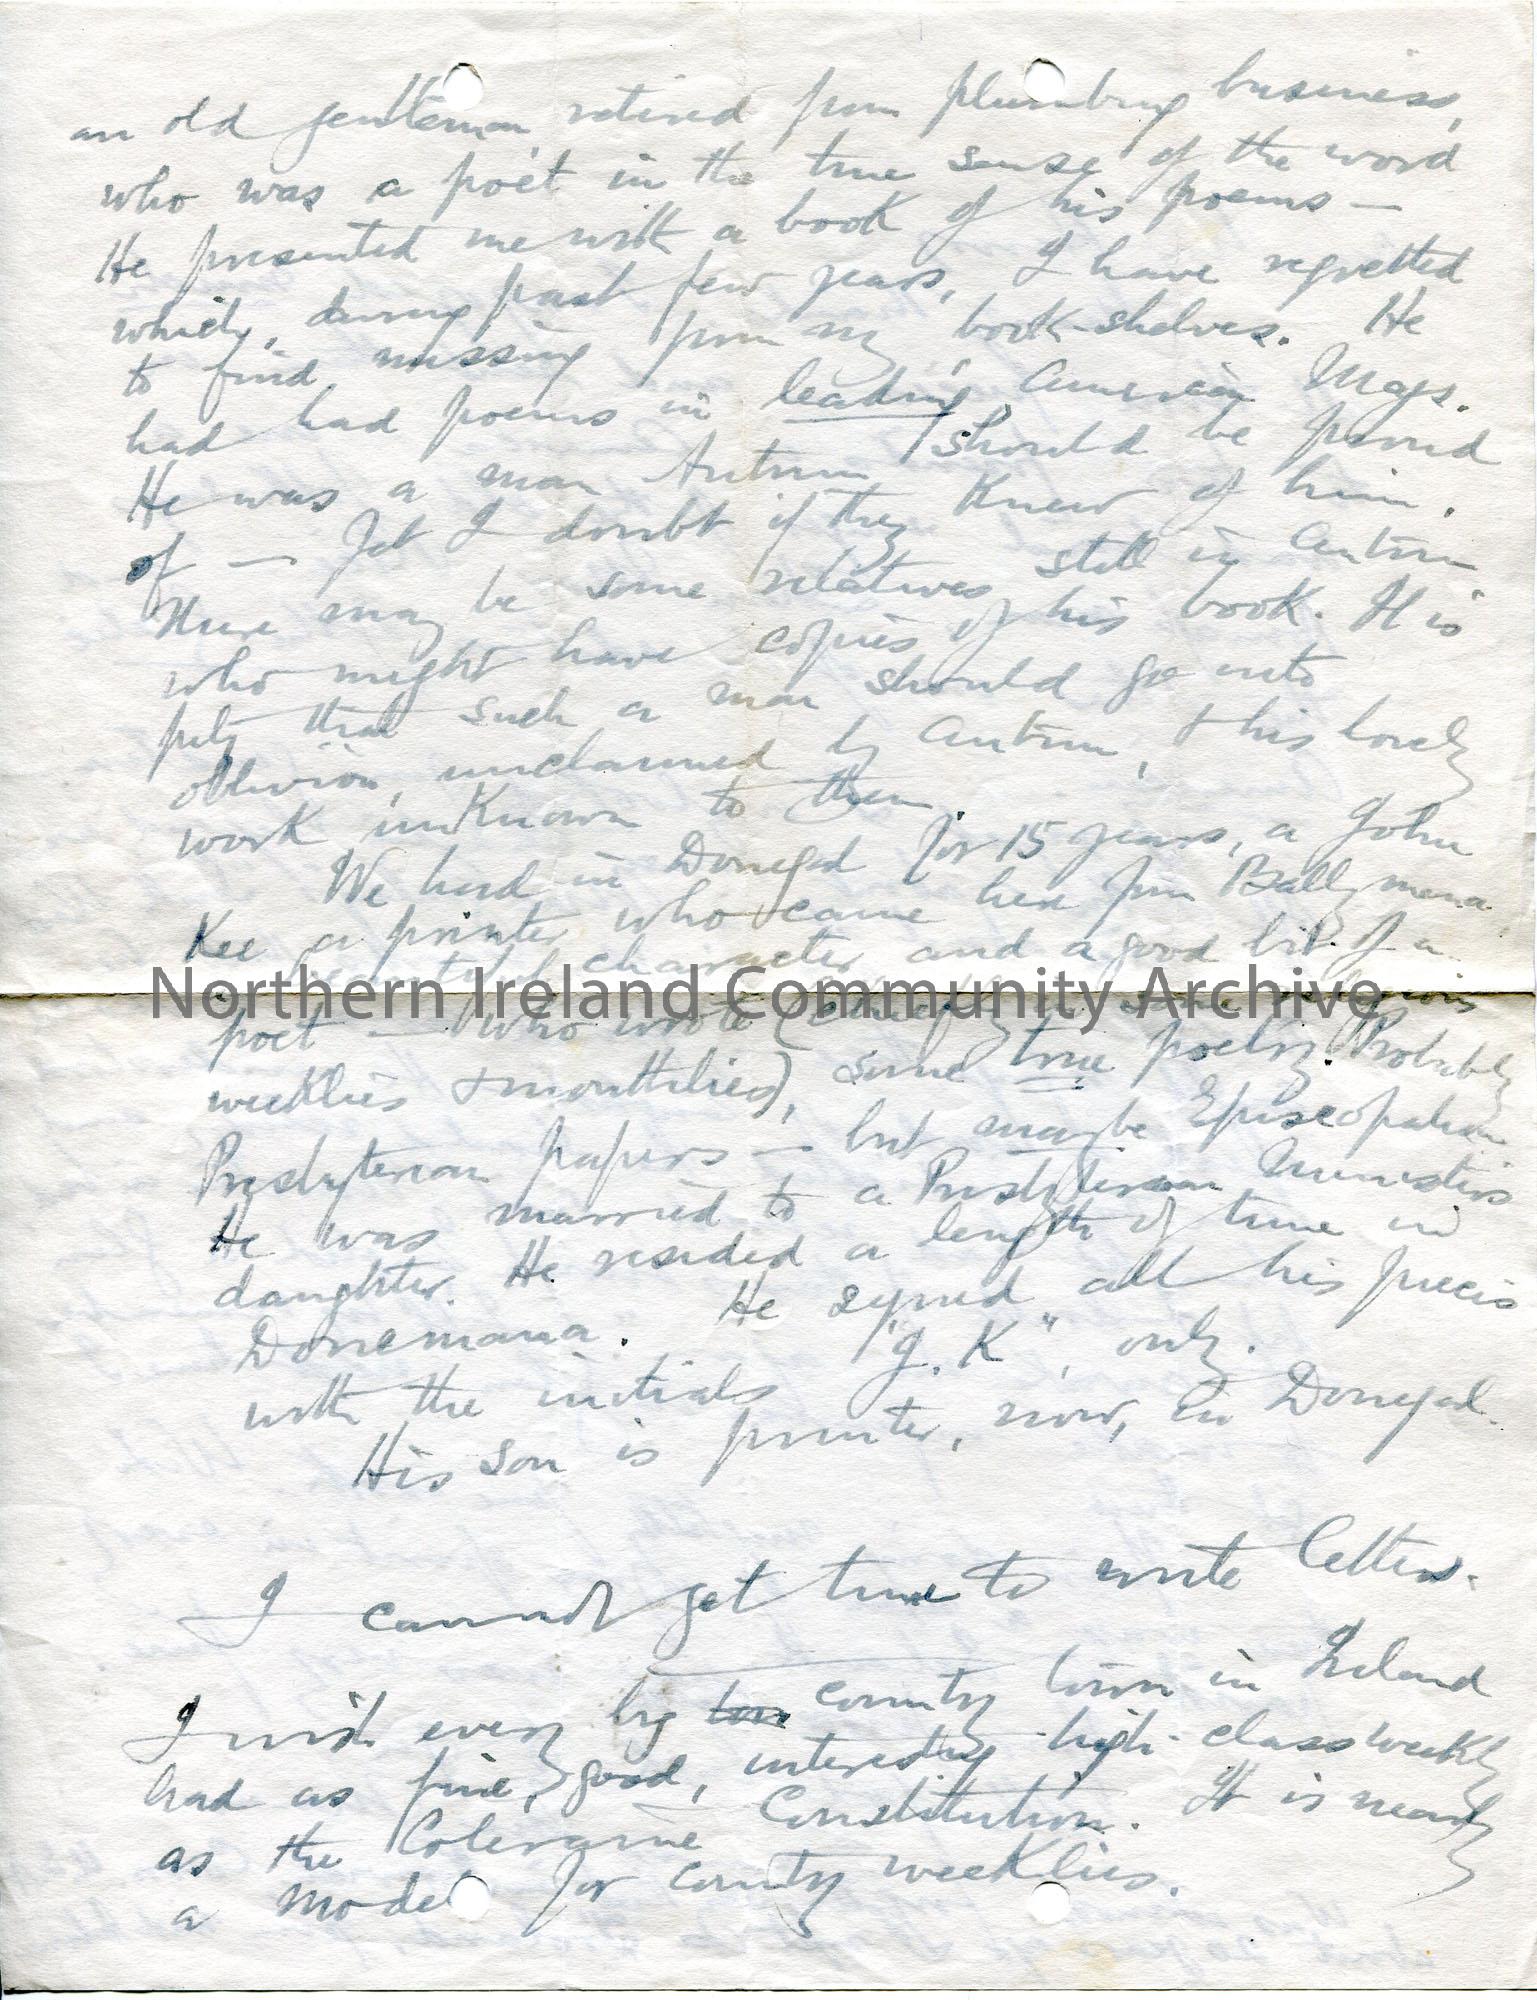 an old gentleman, retired from plumbing business,
who was a poet in the true sense of the word
He presented me with a book of his poems —
which, during past few years, I have regretted
to find, missing from my book-shelves. He
had had poems in leading American Mags.
He was a man Antrim should be proud
of — Yet I doubt if they knew of him.
There may be some relatives still in Antrim
who might have copies of his book. It is
pity that such a man should go into
oblivion, unclaimed by Antrim, & his lovely
work unknown to them.
We had in Donegal for 15 years, a John
Kee a printer who came here from Ballymena
character and a good bit of a
poet — who wrote (chiefly in some religious
weeklies & monthlies), some true poetry. Probably
Presbyterian papers — but maybe Episcopalian
He was married to a Presbyterian Ministers
daughter. He resided a length of time in
Donemana. He signed all his pieces
with the initials "J. K", only.
His son is printer, now, in Donegal.
I cannot get time to write letters.
I wish every big country town in Ireland
had as fine, good, interesting high-class weekly
as the Coleraine Constitution. It is nearly
a model for county weeklies.
Northern Ireland Community Archive